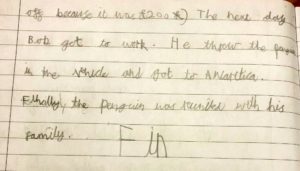 off because it was £200 k) The next day
Bob got to work. He threw the pengu
in the vehicle and got to Antarctica.
Finally, the Penguin was reunited with his
Family.
Fin